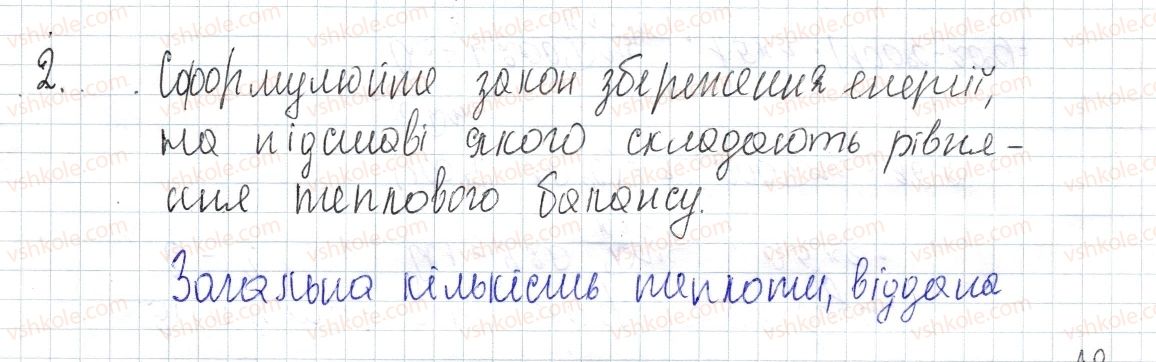 2. Сформулюйте закон збереження енергії,
на підставі якого складають рівня-
ння теплового балансу.
Загальна кількість теплоти, віддана